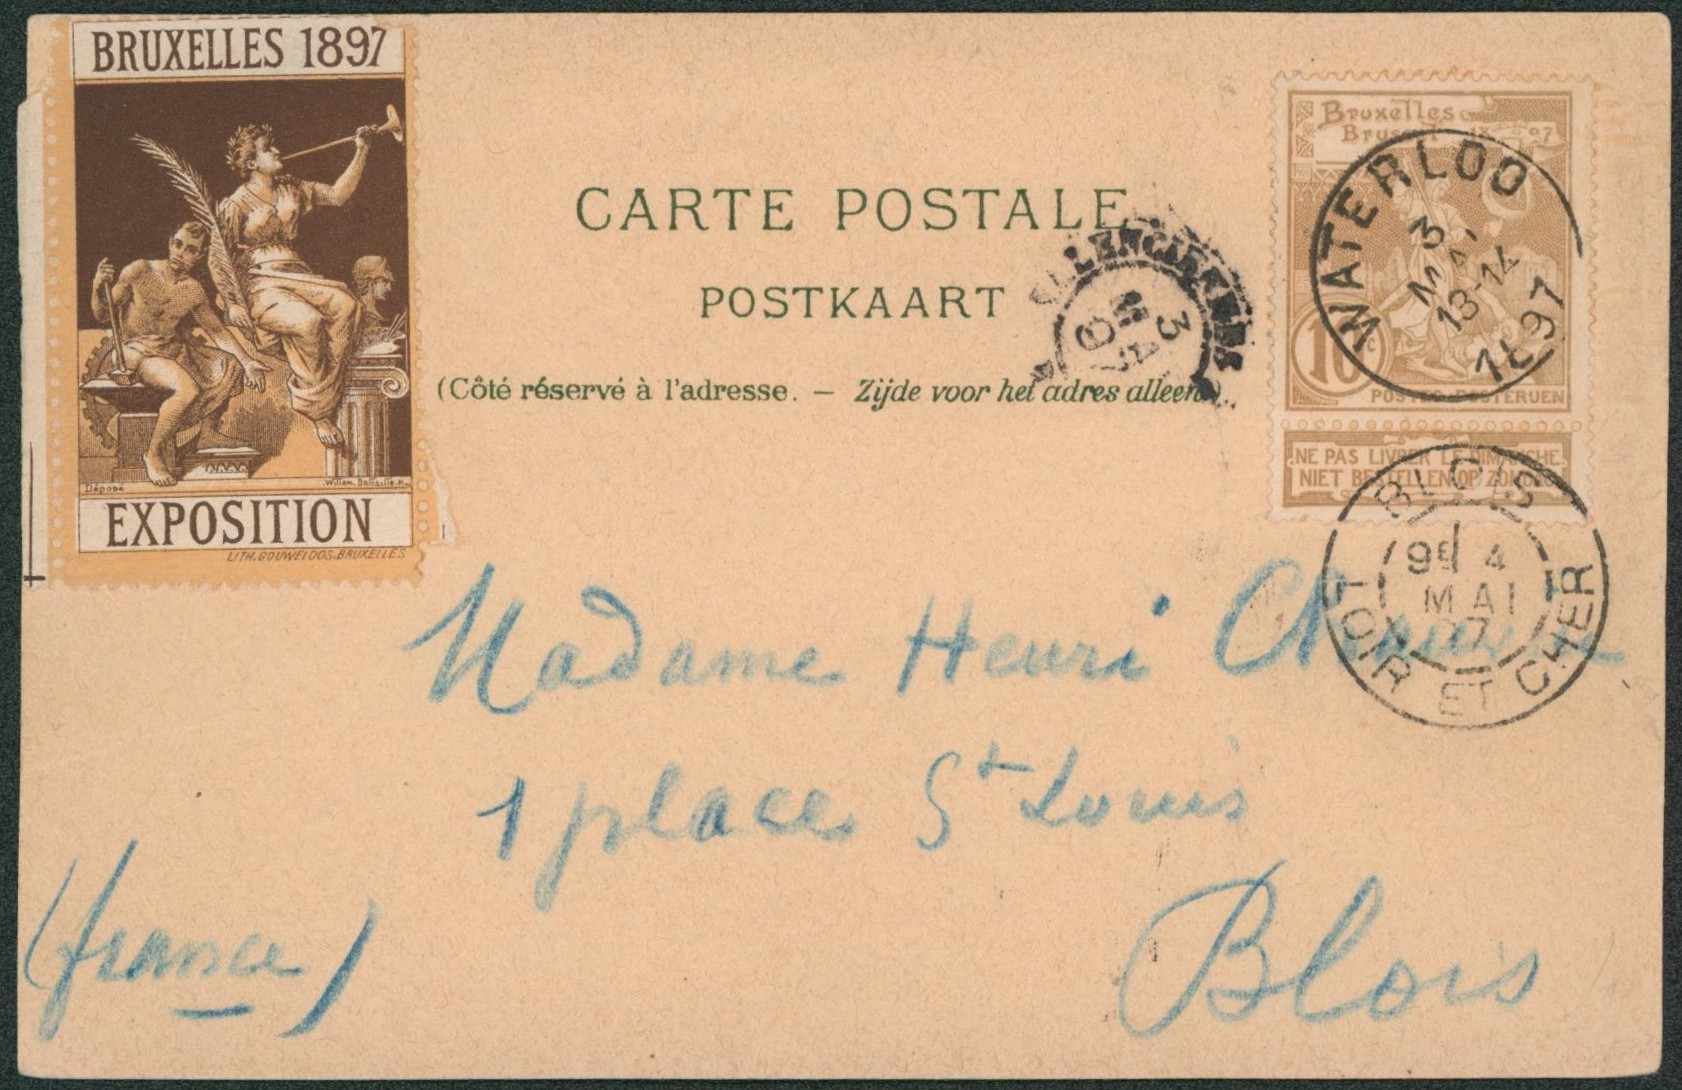 BRUXELLES 1897
Déposé
EXPOSITION
LITH. GOUWELOOS. BRUXELLES
CARTE POSTALE
POSTKAART
(Côté réservé à l'adresse. — Zijde voor het adres alleen.)
Bruxelles
Brussel
10 c
POSTES POSTERIJEN
NE PAS LIVRER LE DIMANCHE.
NIET BESTELLEN OP ZONDAG
WATERLOO
3
MAI
13-14
1897
3
MAI
BLOIS
4
MAI
97
LOIR ET CHER
Madame Henri
1 place St Louis
Blois
(france)